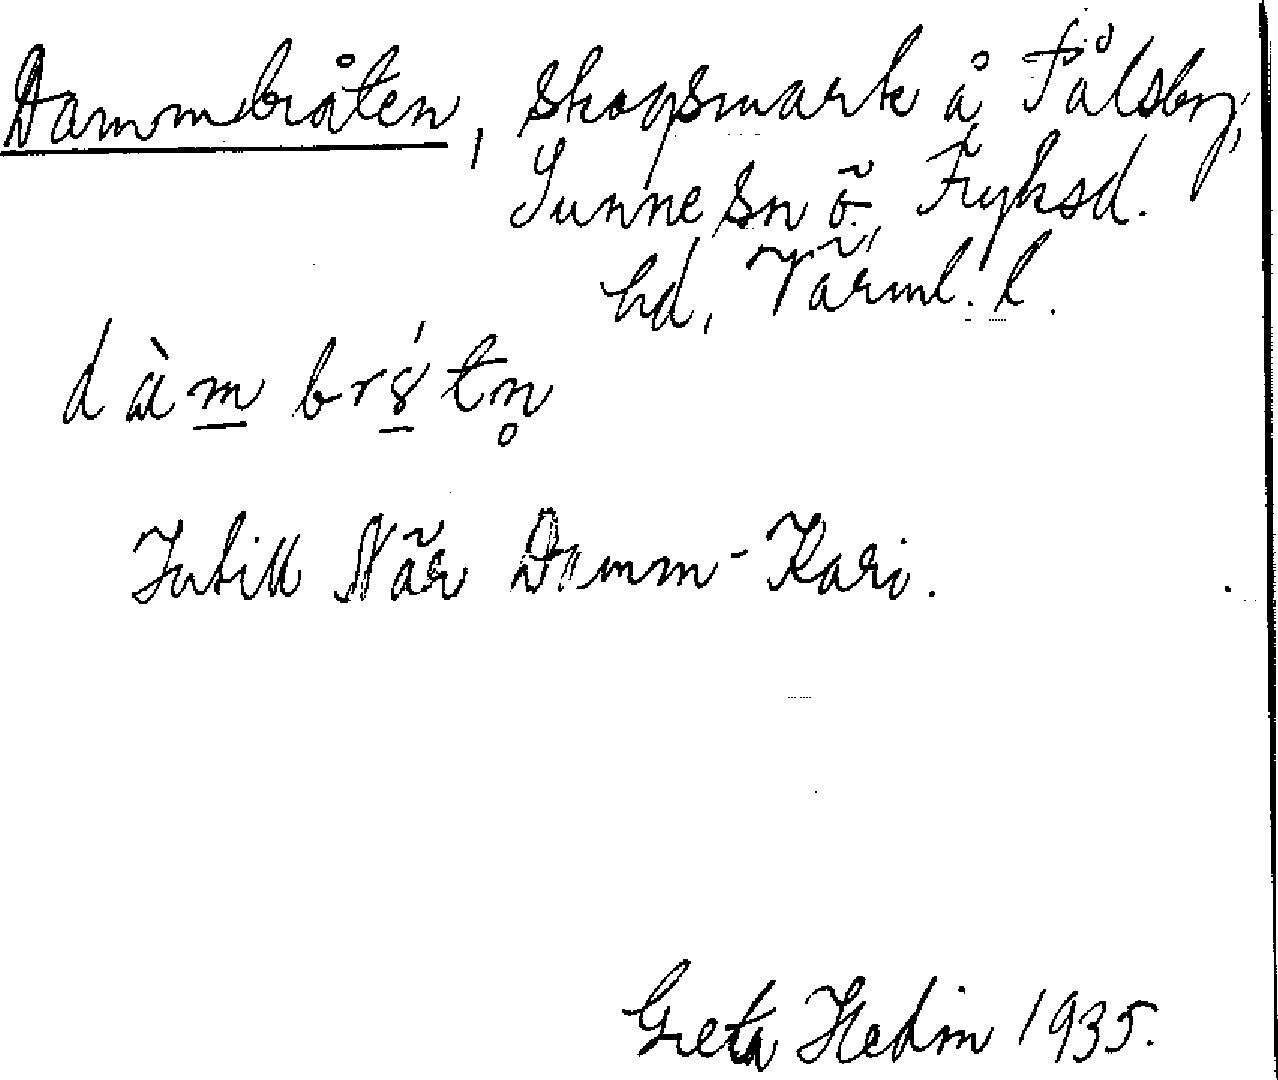 Dammbråten, Skogsmark å Pålsby,
Sunne sn ö., Fryksd.
hd, Värml. l.
dàm brś tn̥
Intill När Damm-Kari.
Greta Hedin 1935.